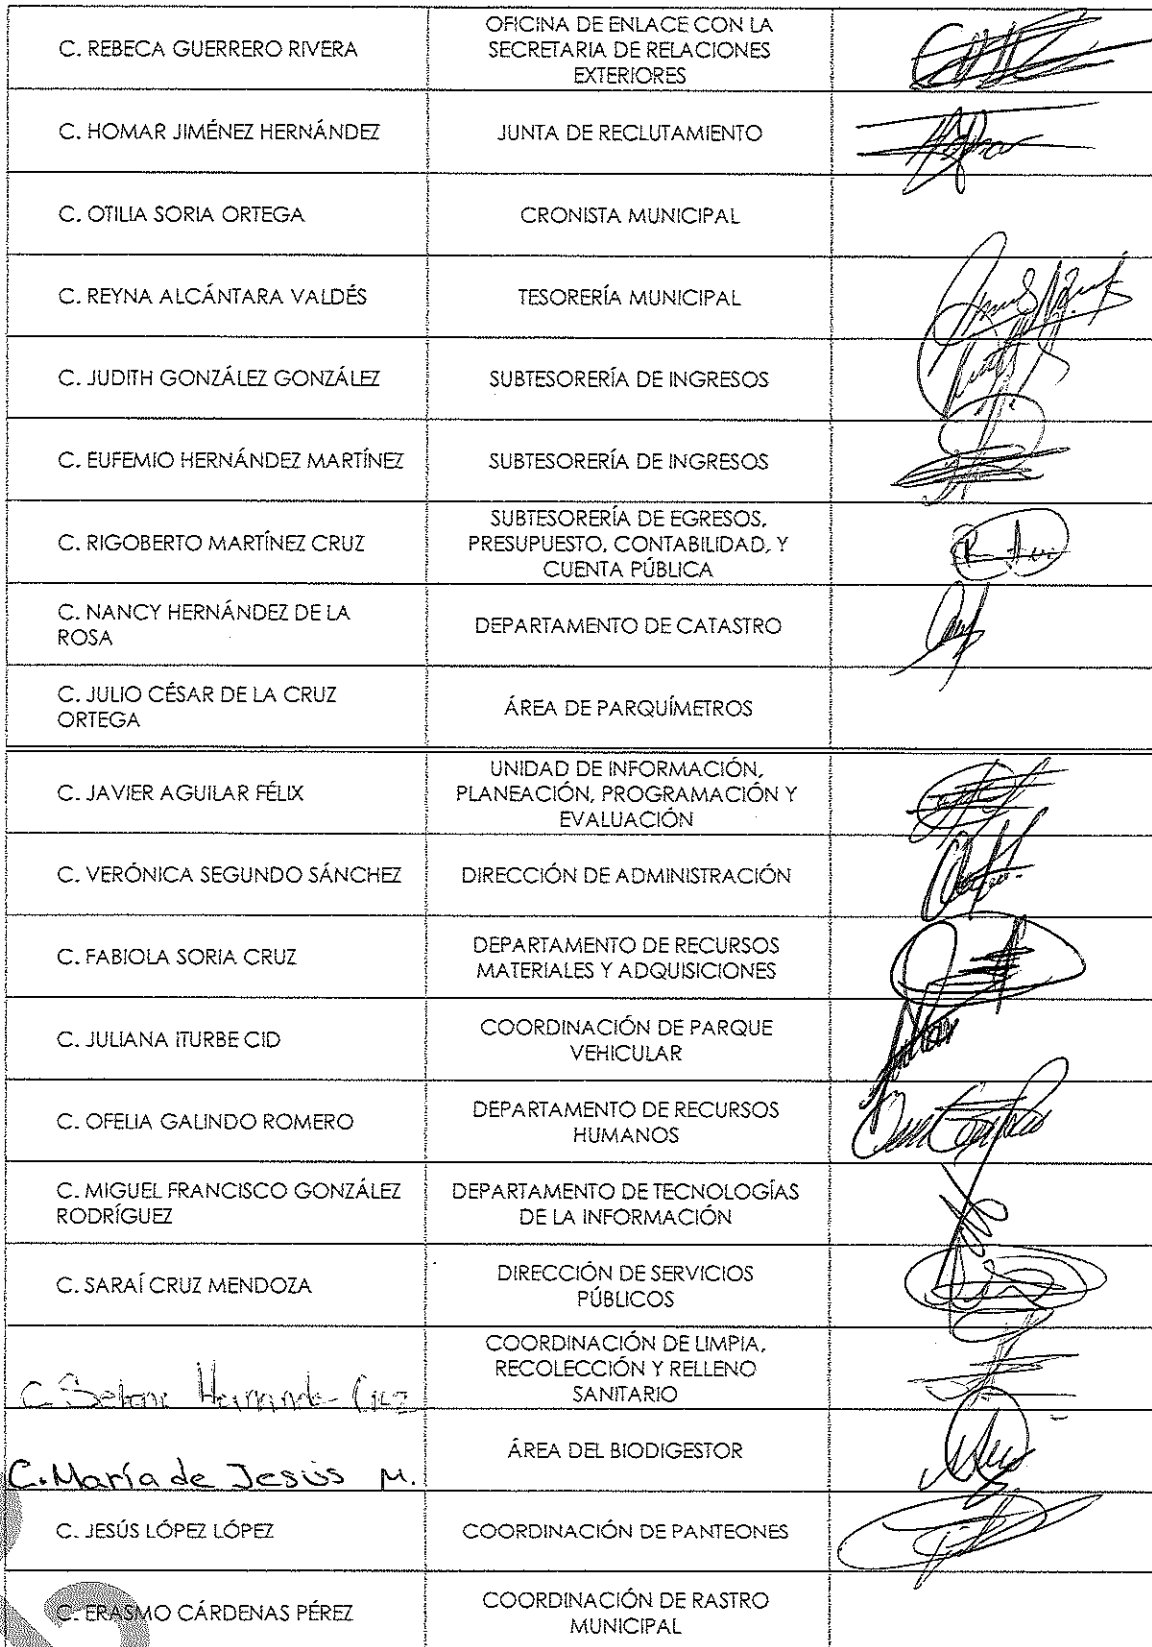 C. REBECA GUERRERO RIVERA
OFICINA DE ENLACE CON LA
SECRETARIA DE RELACIONES
EXTERIORES
C. HOMAR JIMÉNEZ HERNÁNDEZ
JUNTA DE RECLUTAMIENTO
C. OTILIA SORIA ORTEGA
CRONISTA MUNICIPAL
C. REYNA ALCÁNTARA VALDÉS
TESORERÍA MUNICIPAL
C. JUDITH GONZÁLEZ GONZÁLEZ
SUBTESORERÍA DE INGRESOS
C. EUFEMIO HERNÁNDEZ MARTÍNEZ
SUBTESORERÍA DE INGRESOS
C. RIGOBERTO MARTÍNEZ CRUZ
SUBTESORERÍA DE EGRESOS,
PRESUPUESTO, CONTABILIDAD, Y
CUENTA PÚBLICA
C. NANCY HERNÁNDEZ DE LA
ROSA
DEPARTAMENTO DE CATASTRO
C. JULIO CÉSAR DE LA CRUZ
ORTEGA
ÁREA DE PARQUÍMETROS
C. JAVIER AGUILAR FÉLIX
UNIDAD DE INFORMACIÓN,
PLANEACIÓN, PROGRAMACIÓN Y
EVALUACIÓN
C. VERÓNICA SEGUNDO SÁNCHEZ
DIRECCIÓN DE ADMINISTRACIÓN
C. FABIOLA SORIA CRUZ
DEPARTAMENTO DE RECURSOS
MATERIALES Y ADQUISICIONES
C. JULIANA ITURBE CID
COORDINACIÓN DE PARQUE
VEHICULAR
C. OFELIA GALINDO ROMERO
DEPARTAMENTO DE RECURSOS
HUMANOS
C. MIGUEL FRANCISCO GONZÁLEZ
RODRÍGUEZ
DEPARTAMENTO DE TECNOLOGÍAS
DE LA INFORMACIÓN
C. SARAÍ CRUZ MENDOZA
DIRECCIÓN DE SERVICIOS
PÚBLICOS
C.
COORDINACIÓN DE LIMPIA,
RECOLECCIÓN Y RELLENO
SANITARIO
C. María de Jesús M.
ÁREA DEL BIODIGESTOR
C. JESÚS LÓPEZ LÓPEZ
COORDINACIÓN DE PANTEONES
C. ERASMO CÁRDENAS PÉREZ
COORDINACIÓN DE RASTRO
MUNICIPAL